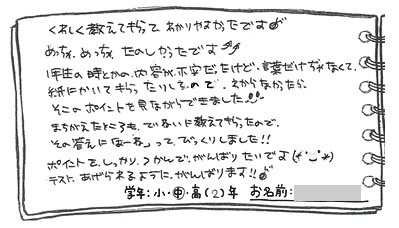 くわしく教えてもらって わかりやすかったです
めっちゃ、めっちゃ たのしかったです
1年生の時とかの、内容が不安だったけど、言葉だけぢゃなくて、
紙にかいてもらったりしたので、わからなかったら
そこのポイントを見ながらできました!!
まちがえたところも、ていねいに教えてもらったので、
その答えに「あ~ね」って、びっくりしました!!
ポイントを、しっかり、つかんで、がんばりたいです(*^-^*)
テスト、あげられるように、がんばります!!
学年:小・中・高(2)年 お名前: